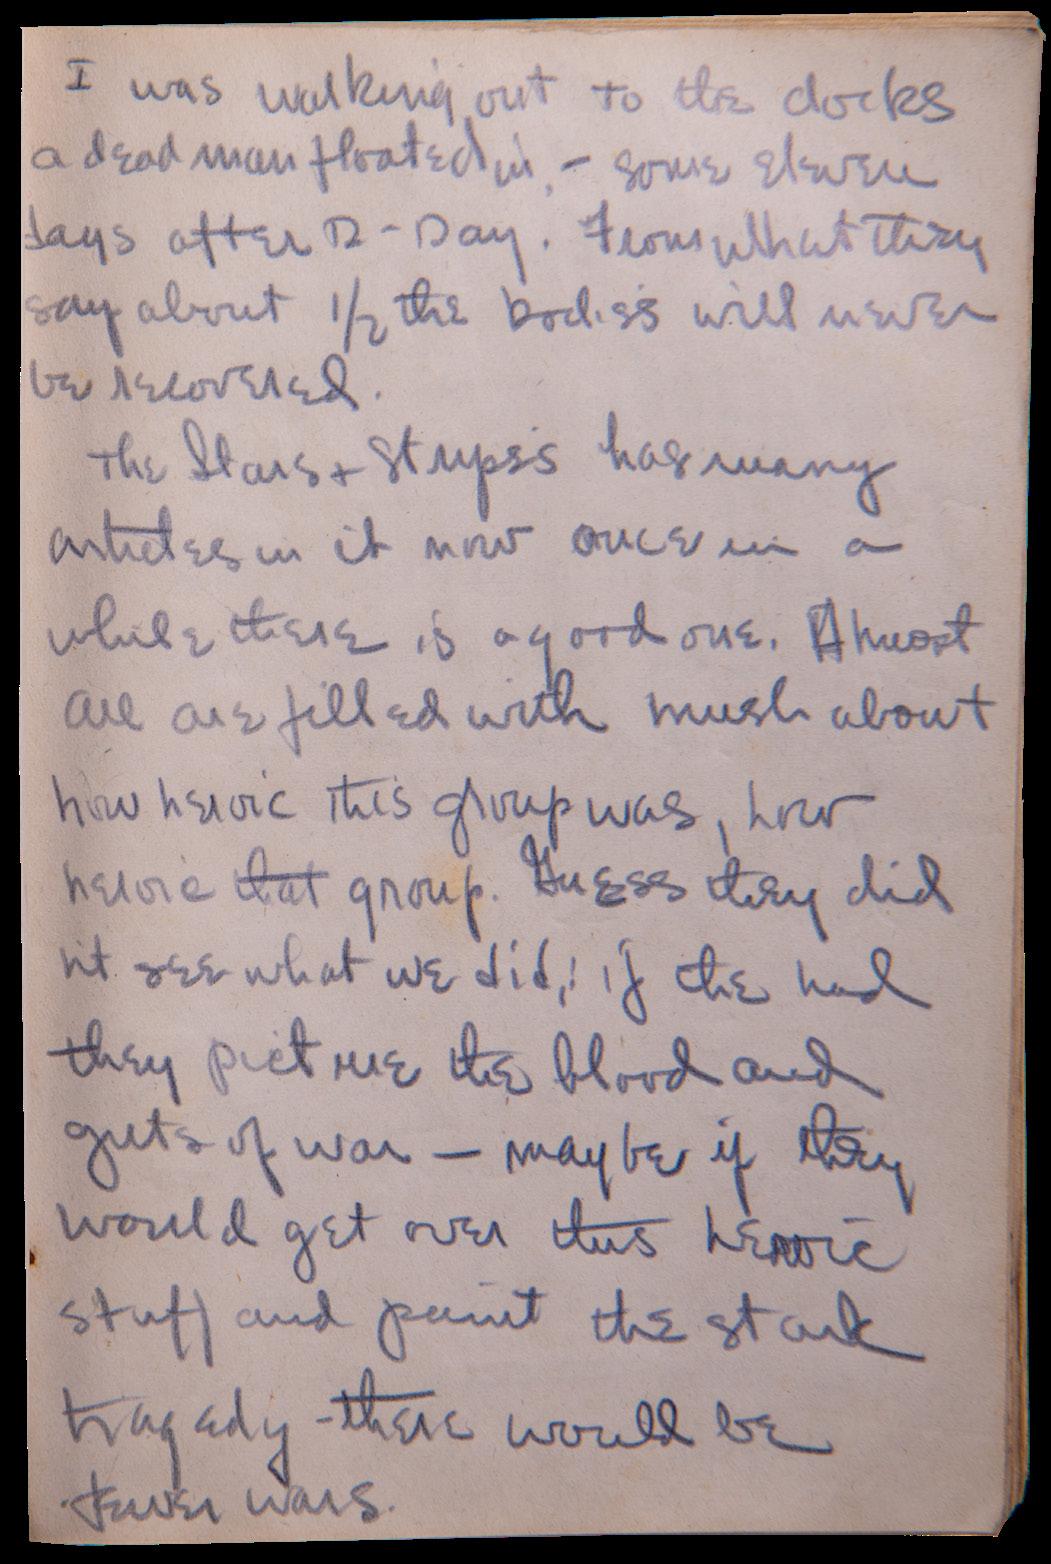 I was walking out to the docks
a dead man floated in, - some eleven
days after D-Day. From what they
say about 1/2 the bodies will never
be recovered.
The Stars & Stripes has many
articles in it now once in a
while there is a good one. Almost
all are filled with mush about
how heroic this group was, how
heroic that group. Guess they did
nt see what we did,: if the had
they picture the blood and
guts of war — maybe if they
would get over this heroic
stuff and paint the stark
tragedy - there would be
fewer wars.